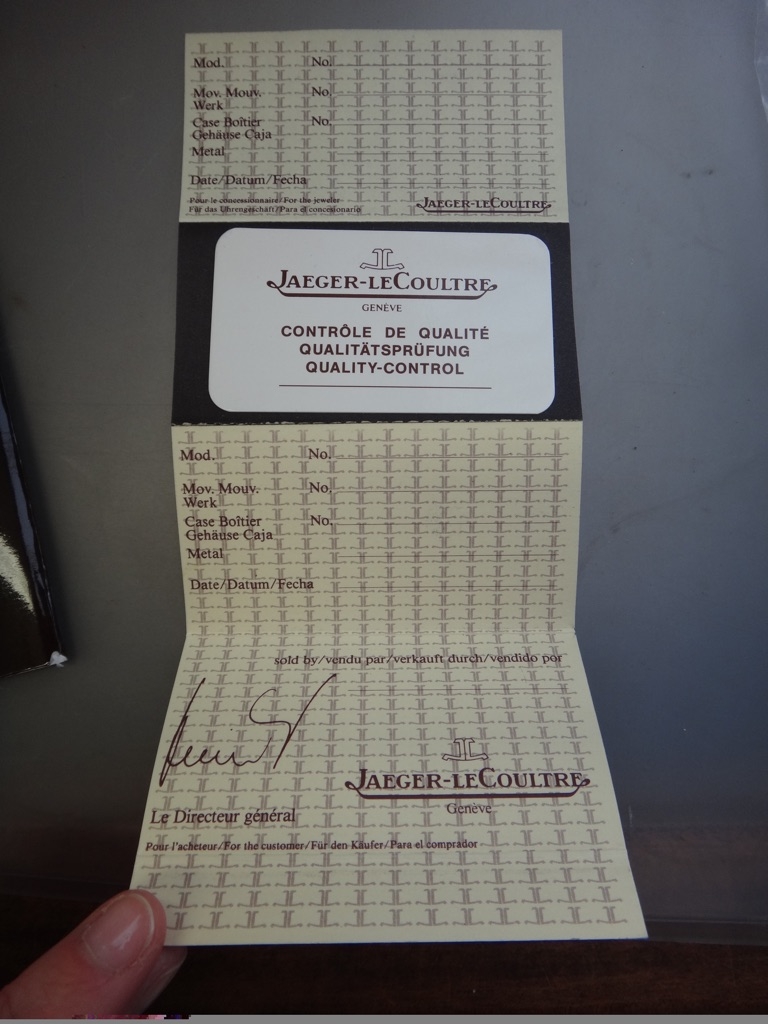 Mod. No.
Mov. Mouv. No.
Werk
Case Boîtier No.
Gehäuse Caja
Metal
Date/Datum/Fecha
Pour le concessionnaire/For the jeweler
Für das Uhrengeschäft/Para el concesionario
JAEGER-LECOULTRE
JAEGER-LECOULTRE
GENÈVE
CONTRÔLE DE QUALITÉ
QUALITÄTSPRÜFUNG
QUALITY-CONTROL
Mod. No.
Mov. Mouv. No.
Werk
Case Boîtier No.
Gehäuse Caja
Metal
Date/Datum/Fecha
sold by/vendu par/verkauft durch/vendido por
JAEGER-LECOULTRE
Genève
Le Directeur général
Pour l'acheteur/For the customer/Für den Käufer/Para el comprador